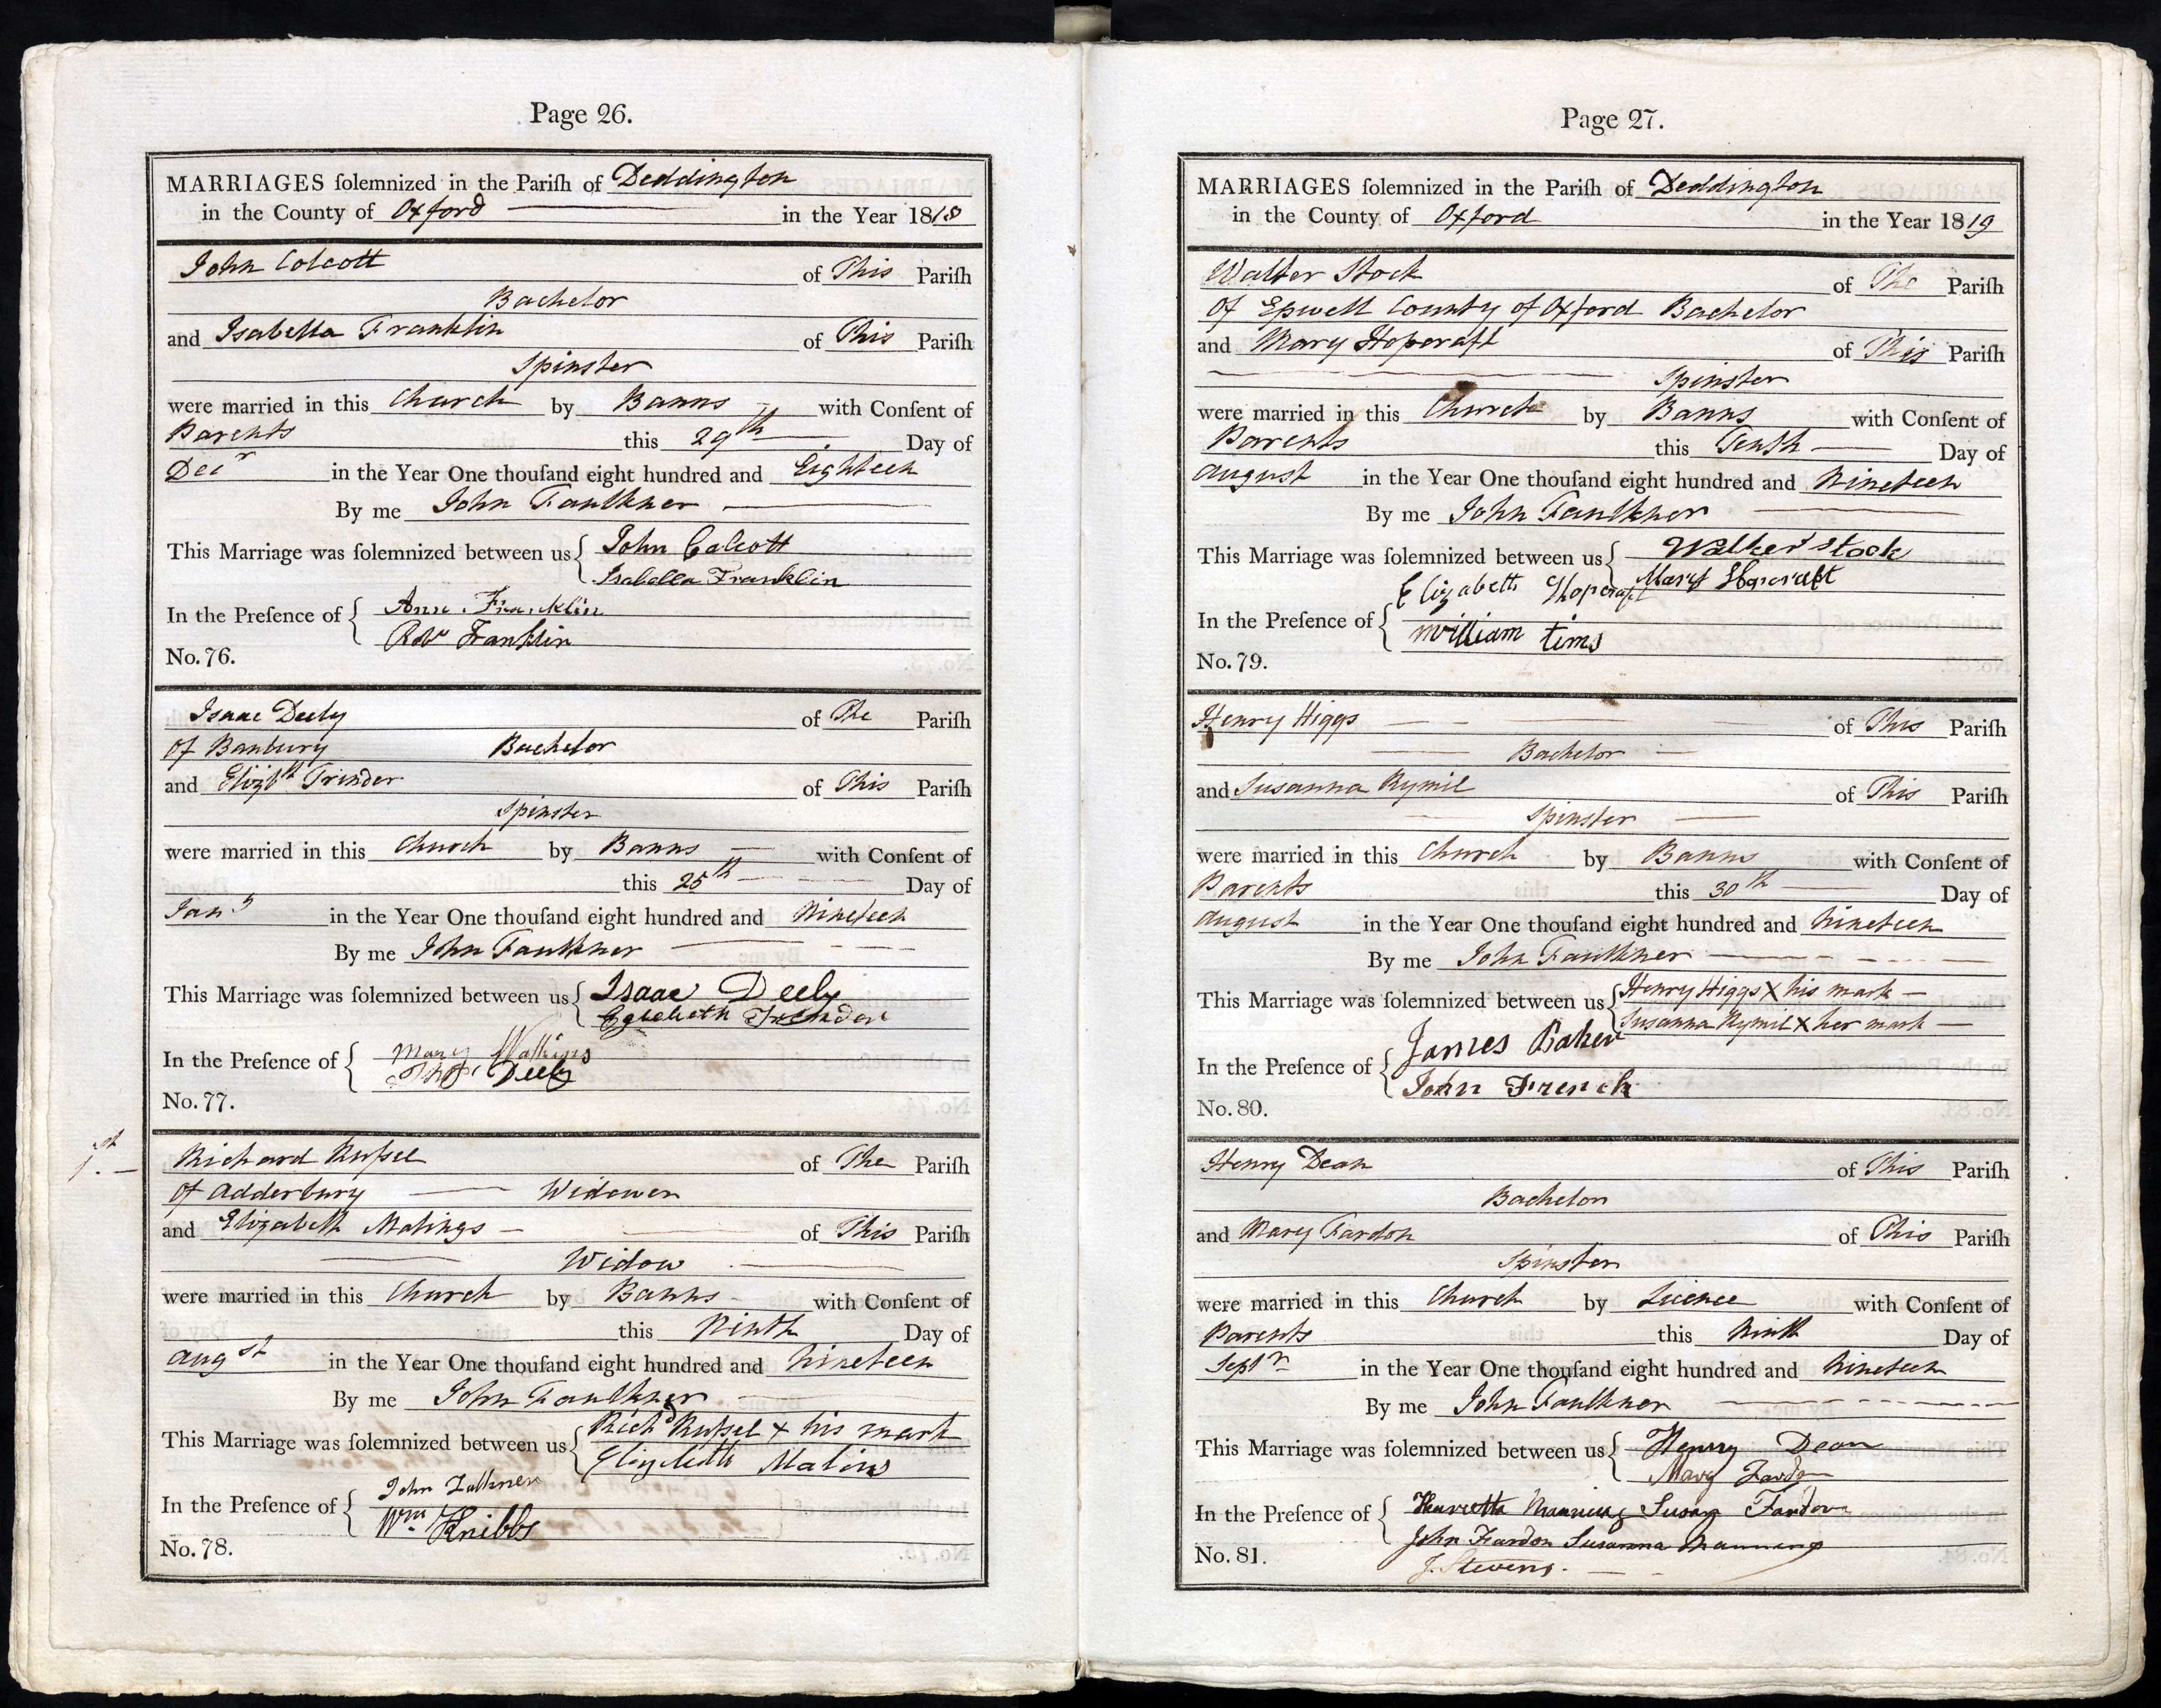 Page 26.
MARRIAGES solemnized in the Parish of Deddington
in the County of Oxford in the Year 1818
John Colcott of This Parish
Bachelor
and Isabella Franklin of This Parish
Spinster
were married in this Church by Banns with Consent of
Parents this 29th Day of
Decr in the Year One thousand eight hundred and Eighteen
By me John Faulkner
This Marriage was solemnized between us John Calcott
Isabella Franklin
In the Presence of Ann Franklin
Robt Franklin
No. 76.
Isaac Deely of The Parish
of Banbury Bachelor
and Elizbth Trinder of This Parish
Spinster
were married in this Church by Banns with Consent of
this 25th Day of
Jany in the Year One thousand eight hundred and Nineteen
By me John Faulkner
This Marriage was solemnized between us Isaac Deely
Trinder
In the Presence of Mary Watkins
Deely
No. 77.
1st
Richard Russel of The Parish
of Adderbury Widower
and Elizabeth Malings of This Parish
Widow
were married in this Church by Banns with Consent of
this Ninth Day of
Augst in the Year One thousand eight hundred and Nineteen
By me John Faulkner
This Marriage was solemnized between us Richd Russel X his mark
Elizabeth Malins
In the Presence of John Falkner
Wm Knibbs
No. 78.
Page 27.
MARRIAGES solemnized in the Parish of Deddington
in the County of Oxford in the Year 1819
Walter Stock of The Parish
Of Epwell County of Oxford Bachelor
and Mary Hopcraft of This Parish
Spinster
were married in this Church by Banns with Consent of
Parents this Tenth Day of
August in the Year One thousand eight hundred and Nineteen
By me John Faulkner
This Marriage was solemnized between us Walter Stock
Mary Hopcraft
In the Presence of Elizabeth Hopcraft
William tims
No. 79.
Henry Higgs of This Parish
Bachelor
and Susanna Rymil of This Parish
Spinster
were married in this Church by Banns with Consent of
Parents this 30th Day of
August in the Year One thousand eight hundred and Nineteen
By me John Faulkner
This Marriage was solemnized between us Henry Higgs X his mark
Susanna Rymil X her mark
In the Presence of James Baker
John French
No. 80.
Henry Dean of This Parish
Bachelor
and Mary Fardon of This Parish
Spinster
were married in this Church by Licence with Consent of
Parents this Ninth Day of
Septr in the Year One thousand eight hundred and Nineteen
By me John Faulkner
This Marriage was solemnized between us Henry Dean
Mary Fardon
In the Presence of Henrietta Manning Susan Fardon
John Fardon Susanna Manning
J. Stevens.
No. 81.